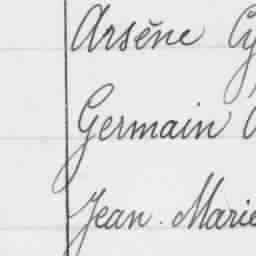 Arsène Cy
Germain
Jean. Marie